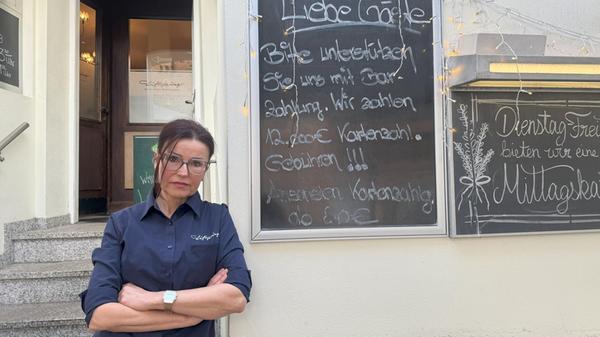 Liebe Gäste
Bitte unterstützen
Sie uns mit Bar
zahlung. Wir zahlen
12.000€ Kartenzahl.
Gebühren !!!
Ansonsten Kartenzahlg
Dienstag-Frei
bieten wir eine
Mittagska